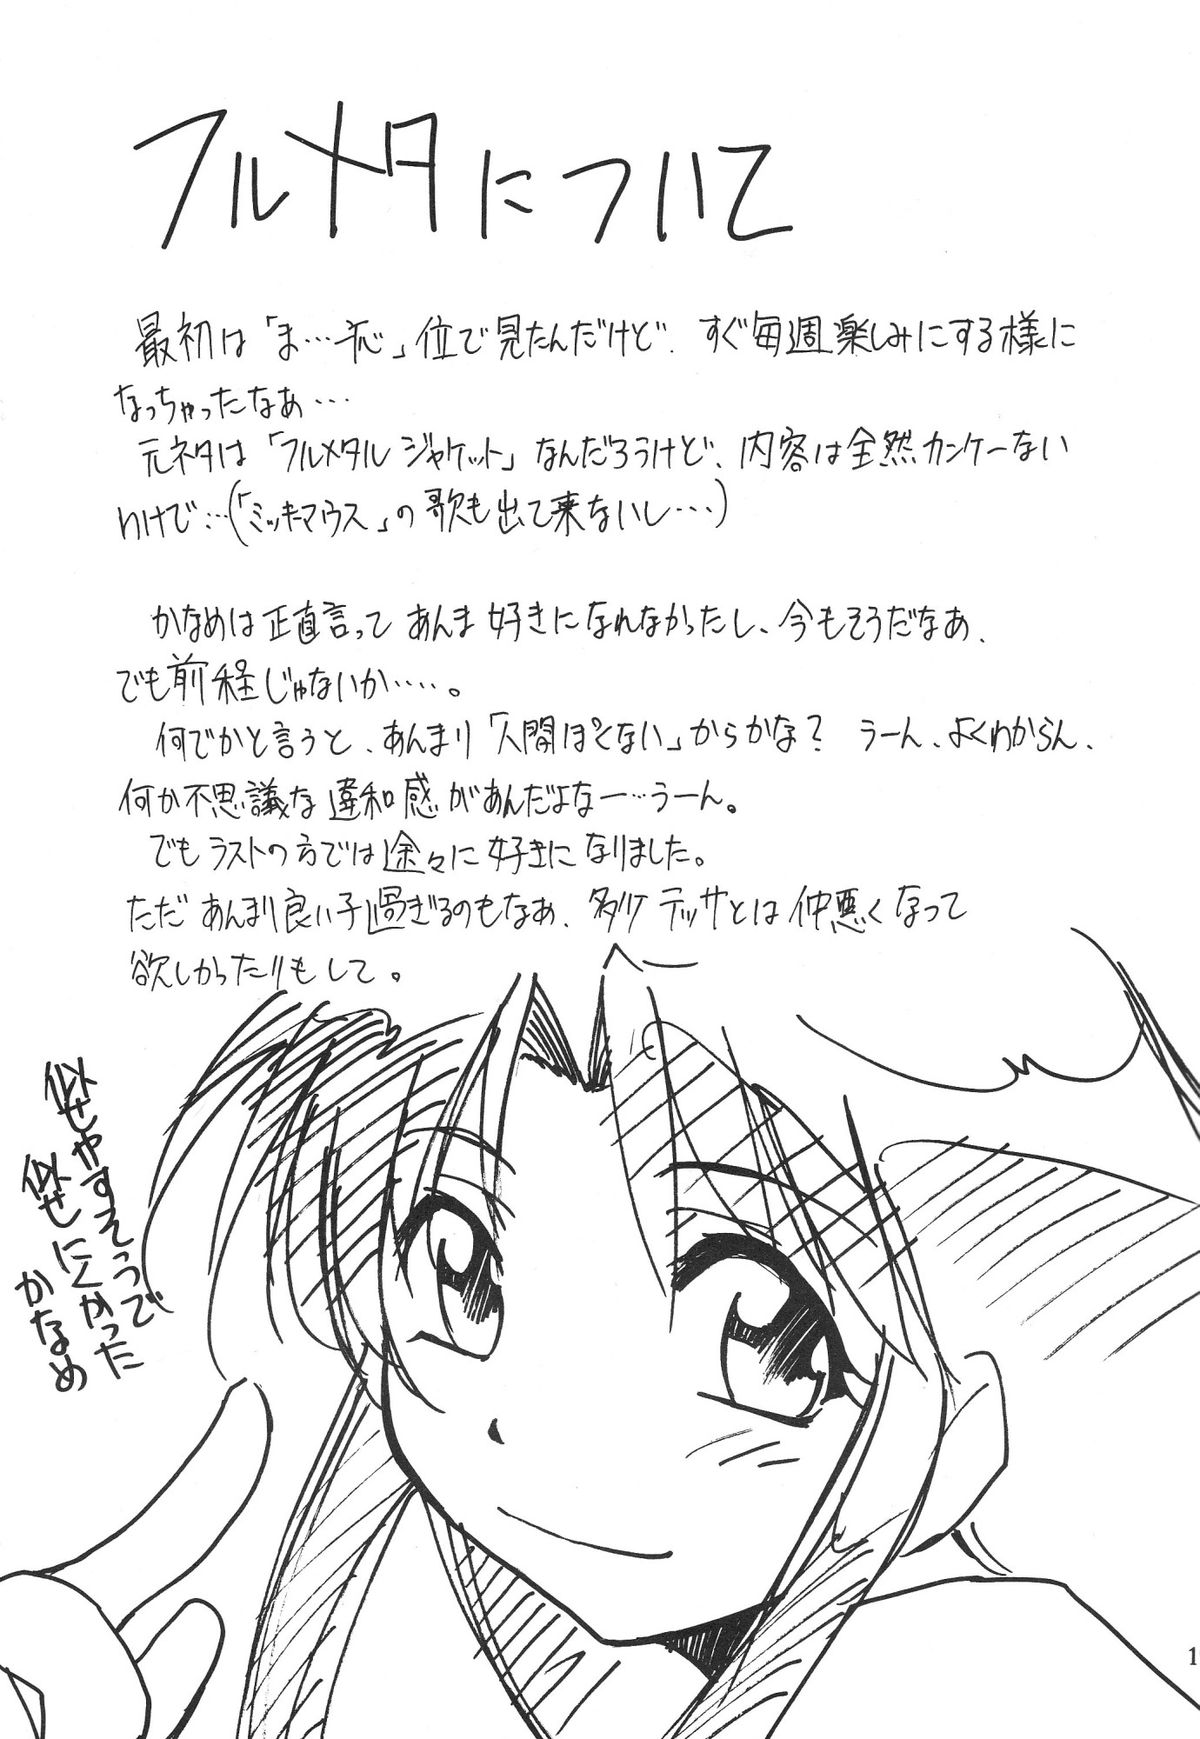 フルメタについて
最初は「ま…一応」位で見たんだけど、すぐ毎週楽しみにする様に
なっちゃったなぁ…
元ネタは「フルメタルジャケット」なんだろうけど、内容は全然カンケーない
わけで…(「ミッキーマウス」の歌も出て来ないし…)
かなめは正直言ってあんま好きになれなかったし、今もそうだなぁ、
でも前程じゃないか……。
何でかと言うと、あんまり「人間ぽくない」からかな? うーん、よくわからん、
何か不思議な違和感があんだよなー…うーん。
でもラストの方では途々に好きになりました。
ただあんまり良い子過ぎるのもなぁ、多少テッサとは仲悪くなって
欲しかったりもして。
似せやすそうで
似せにくかった
かなめ
1